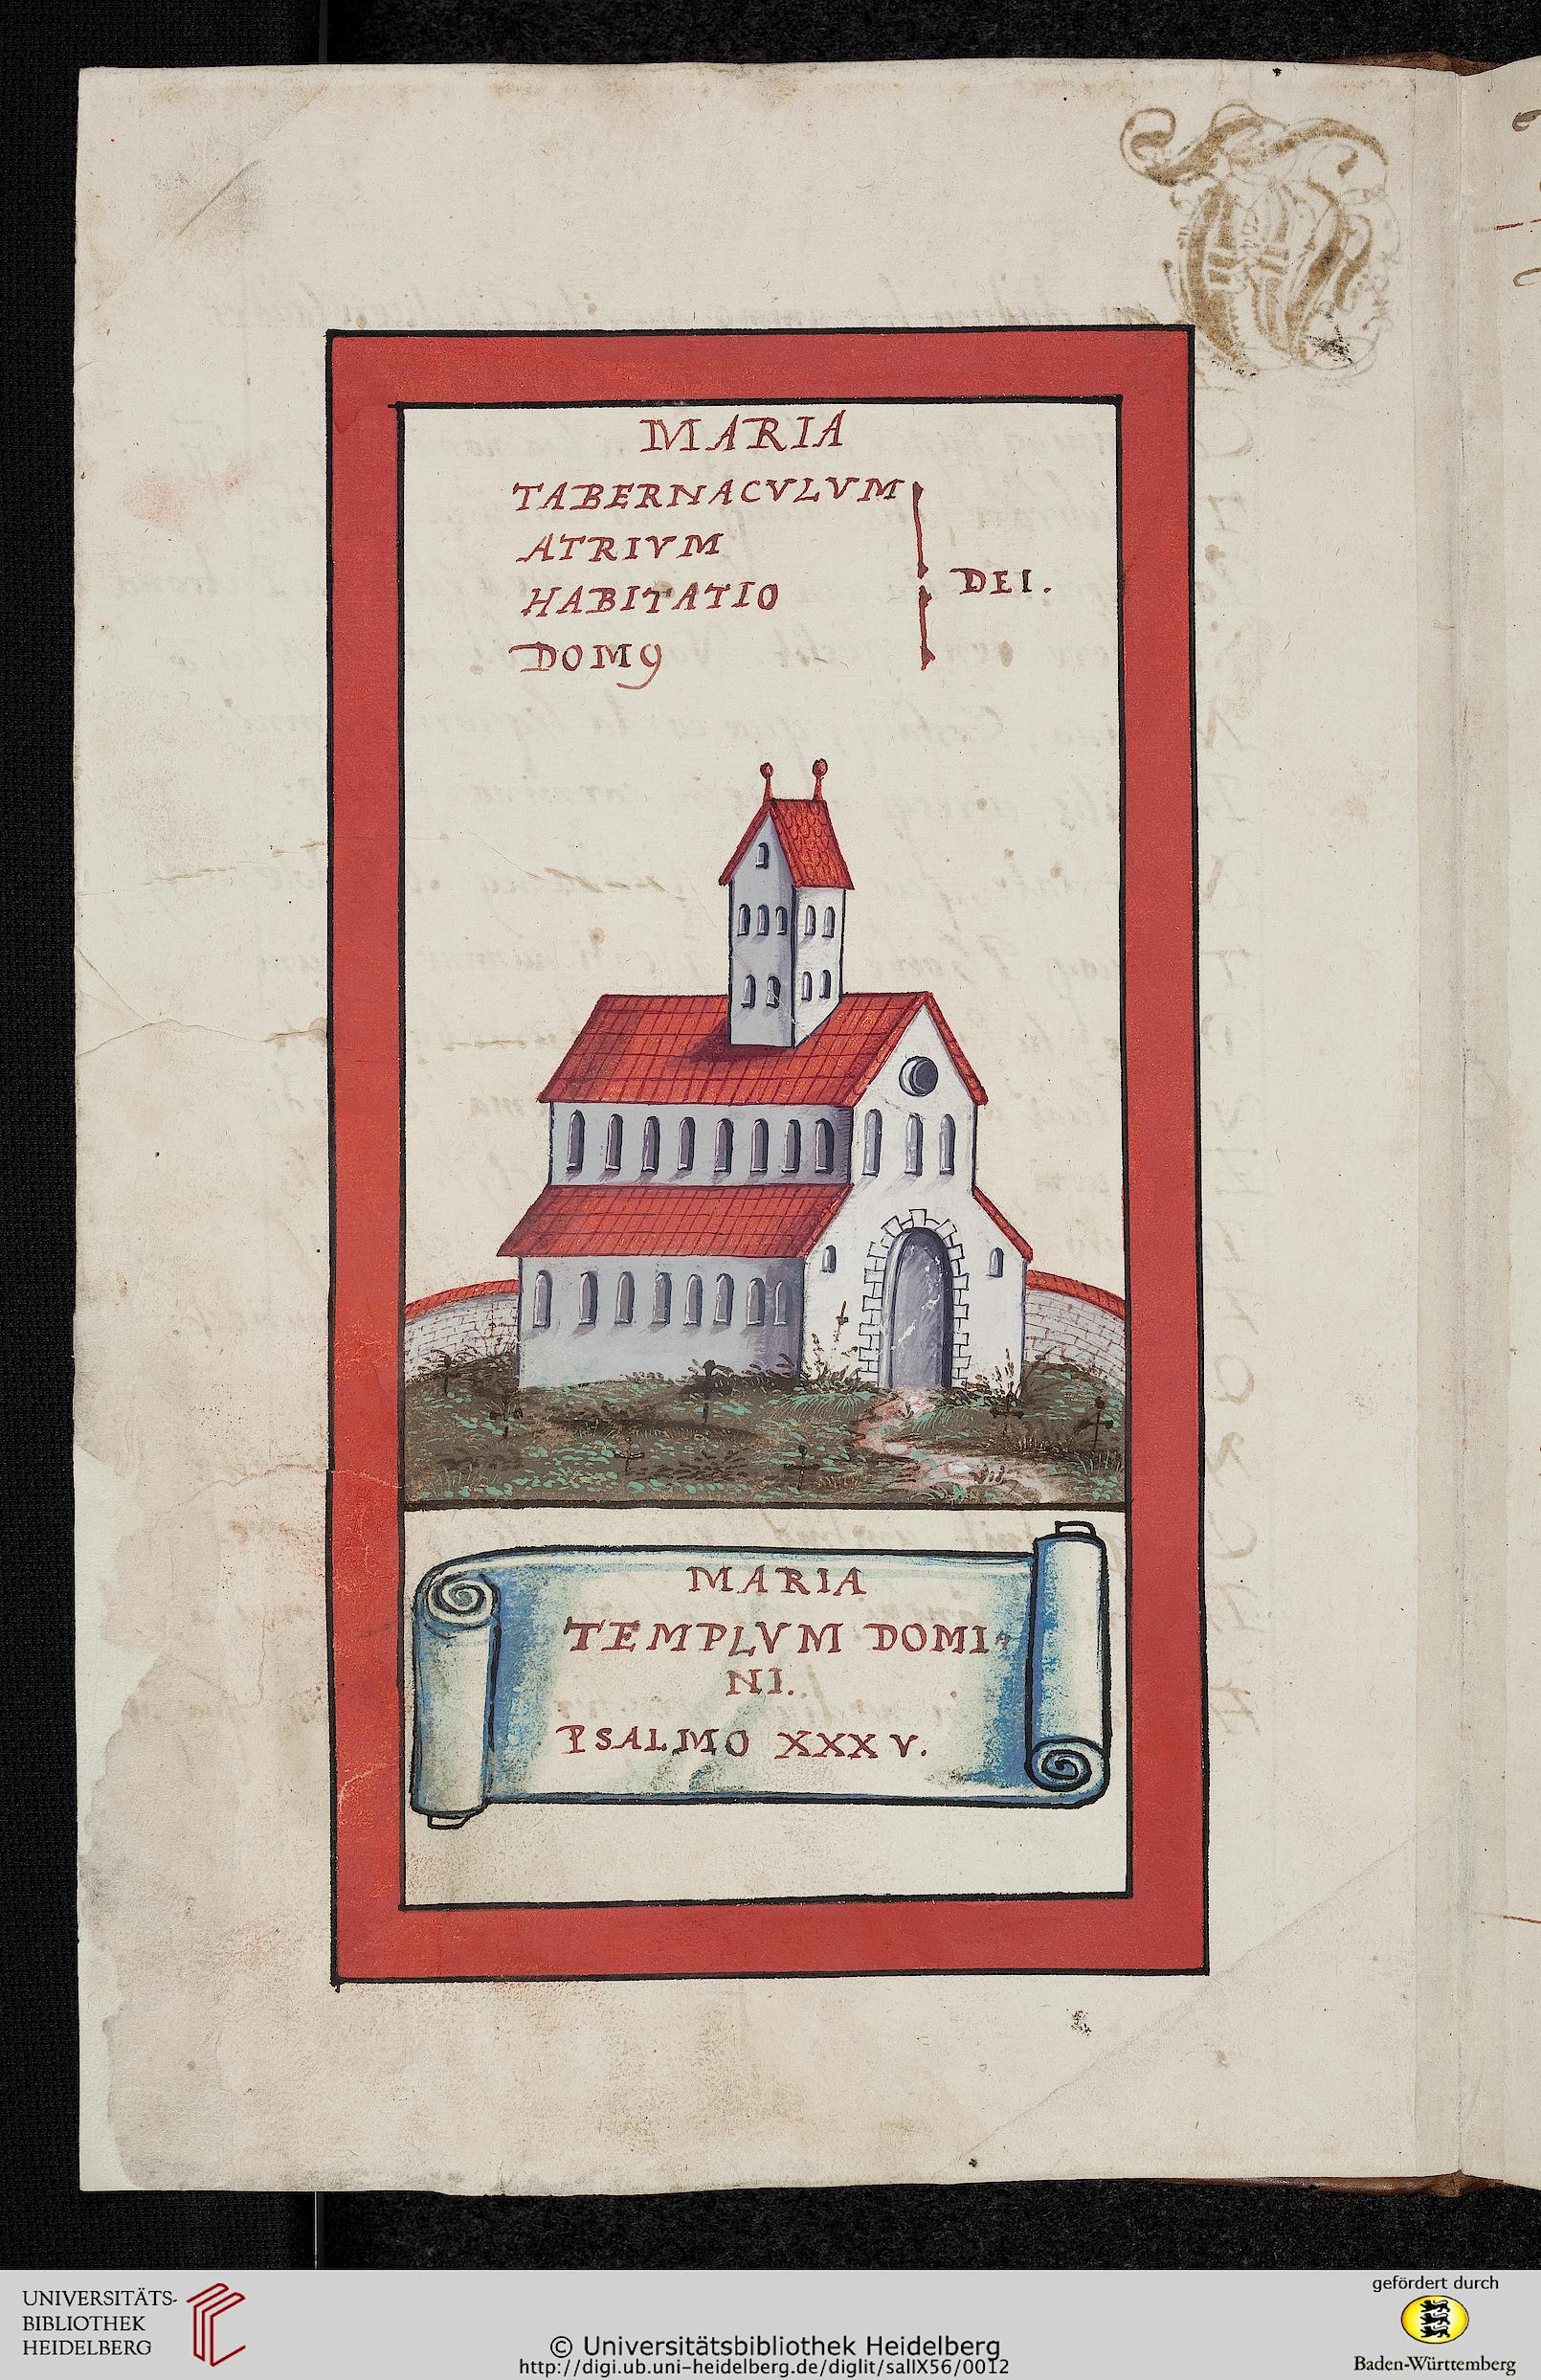 MARIA
TABERNACVLVM
ATRIVM
HABITATIO
DOMꝰ
DEI.
MARIA
TEMPLVM DOMI-
NI.
PSALMO XXXV.
UNIVERSITÄTS-
BIBLIOTHEK
HEIDELBERG
© Universitätsbibliothek Heidelberg
http://digi.ub.uni-heidelberg.de/diglit/salIX56/0012
gefördert durch
Baden-Württemberg